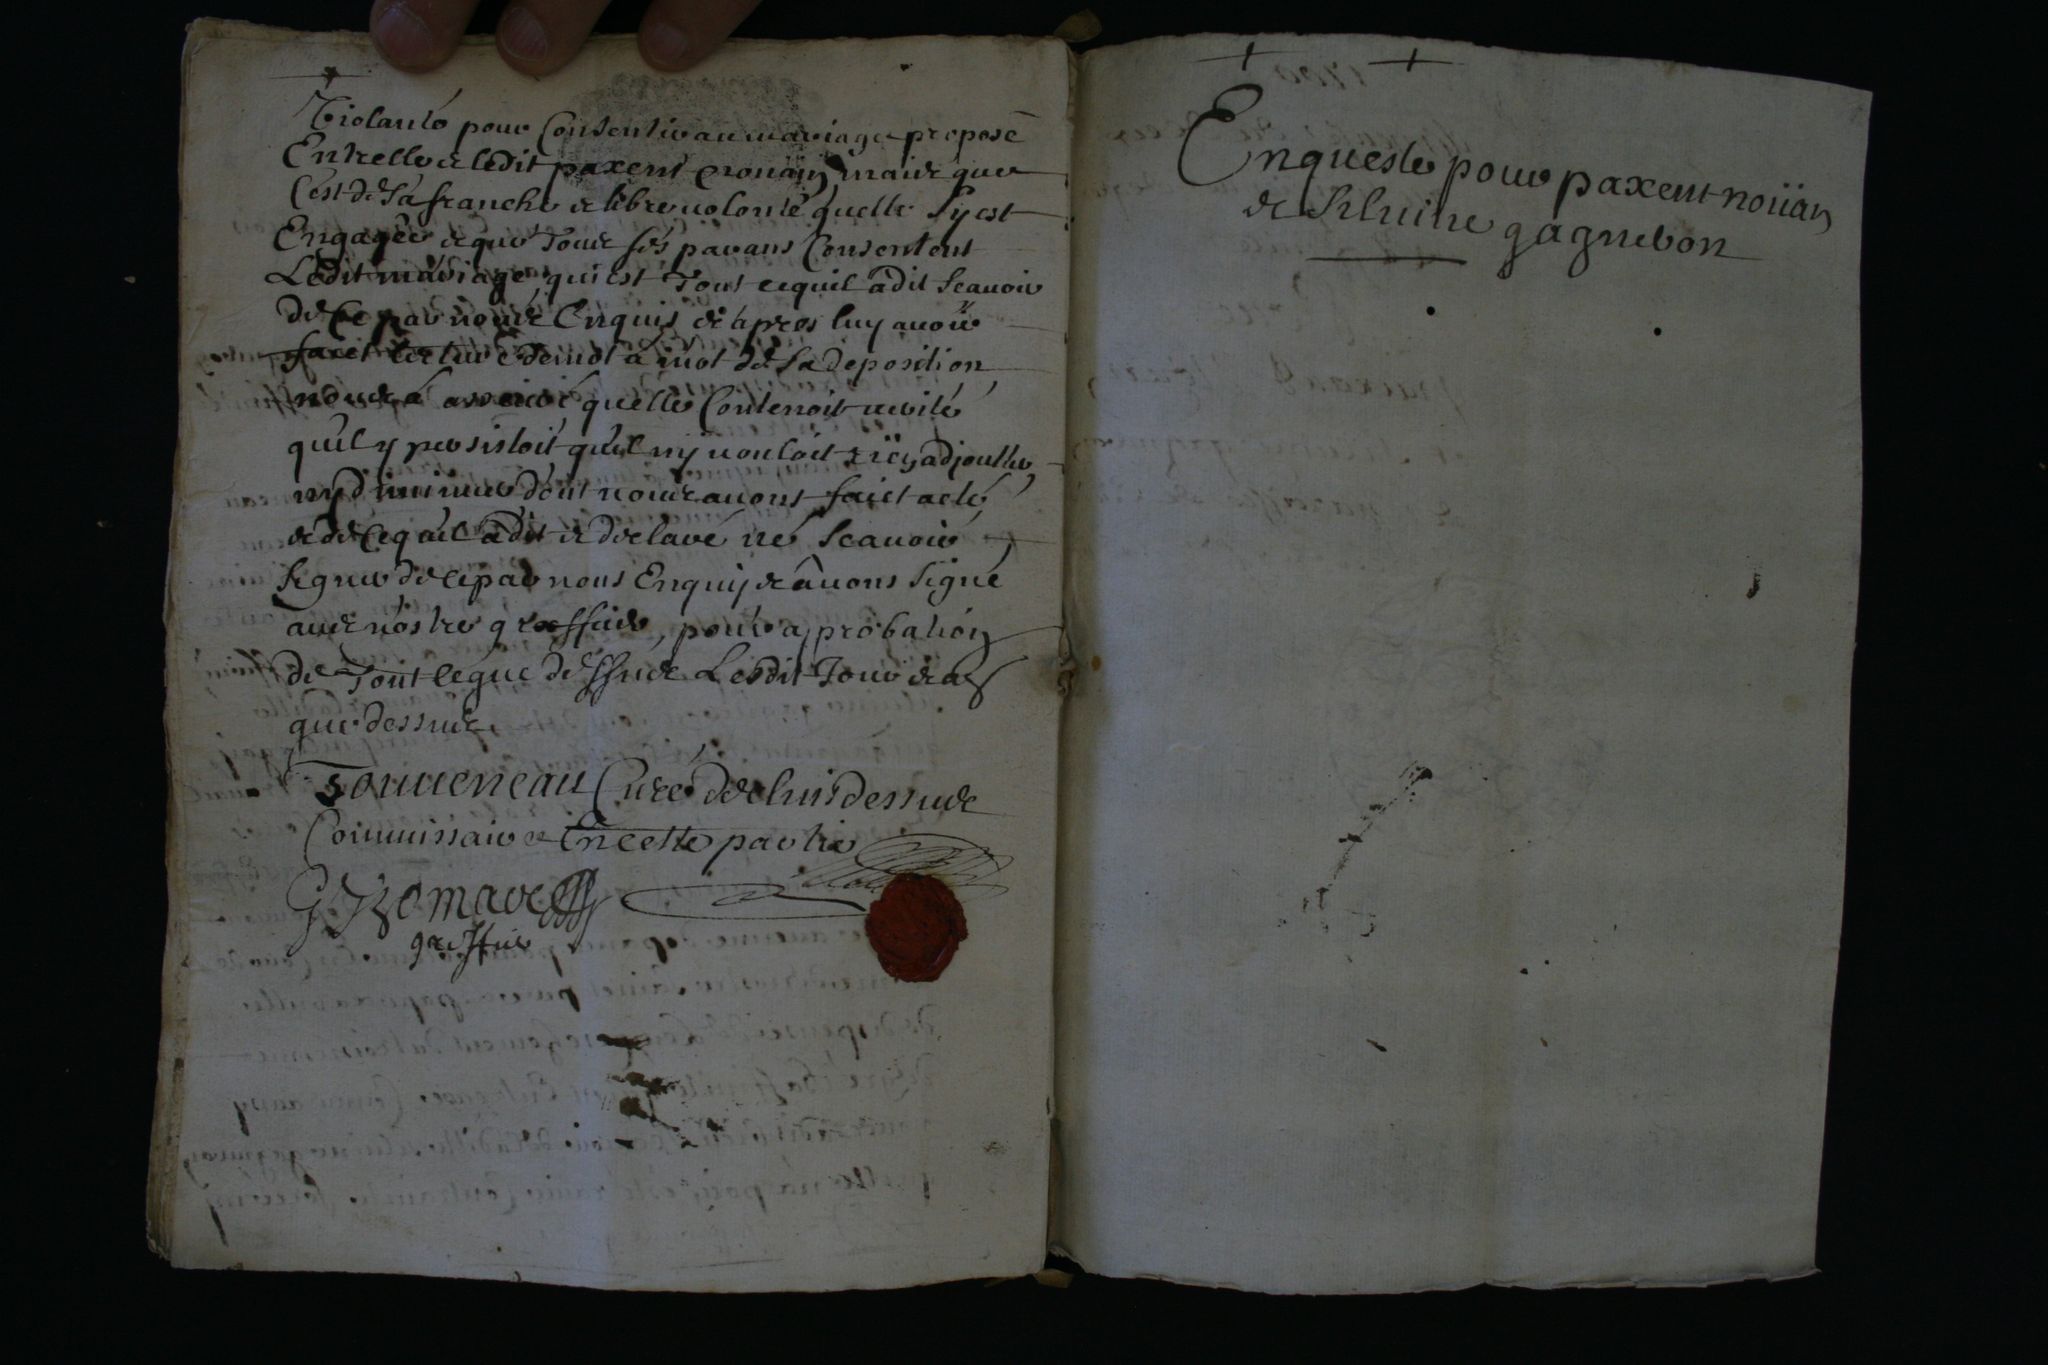 violanté pour Consentir au mariage proposé
Entrelle & ledit paxent nouan mais que
C'est de sa franche & libre uolonté quelle s'y est
Engagée & que Tous ses parans Consentent
Ledit mariage, qui est Tout ce quil a dit scauoir
de Ce par nous Enquis & apres luy auoir
faict lecture de mot a mot de sa deposition
nous a assuré quelle Contenoit uerité
qu'il y persistoit qu'il n'y uouloit rien adjoutter
ny diminuer dont nous auons faict acte
& de Ce qu'il a dit & declaré ne scauoir
signer de ce par nous Enquis & auons signé
auec nostre greffier, pour aprobation
de Tout ce que dessus Lesdit Jour & an
que dessus
Touueneau Curé de luis dessus
Commissaire En cette partie
greffier
Enqueste pour paxent noüan
& siluine gagnebon